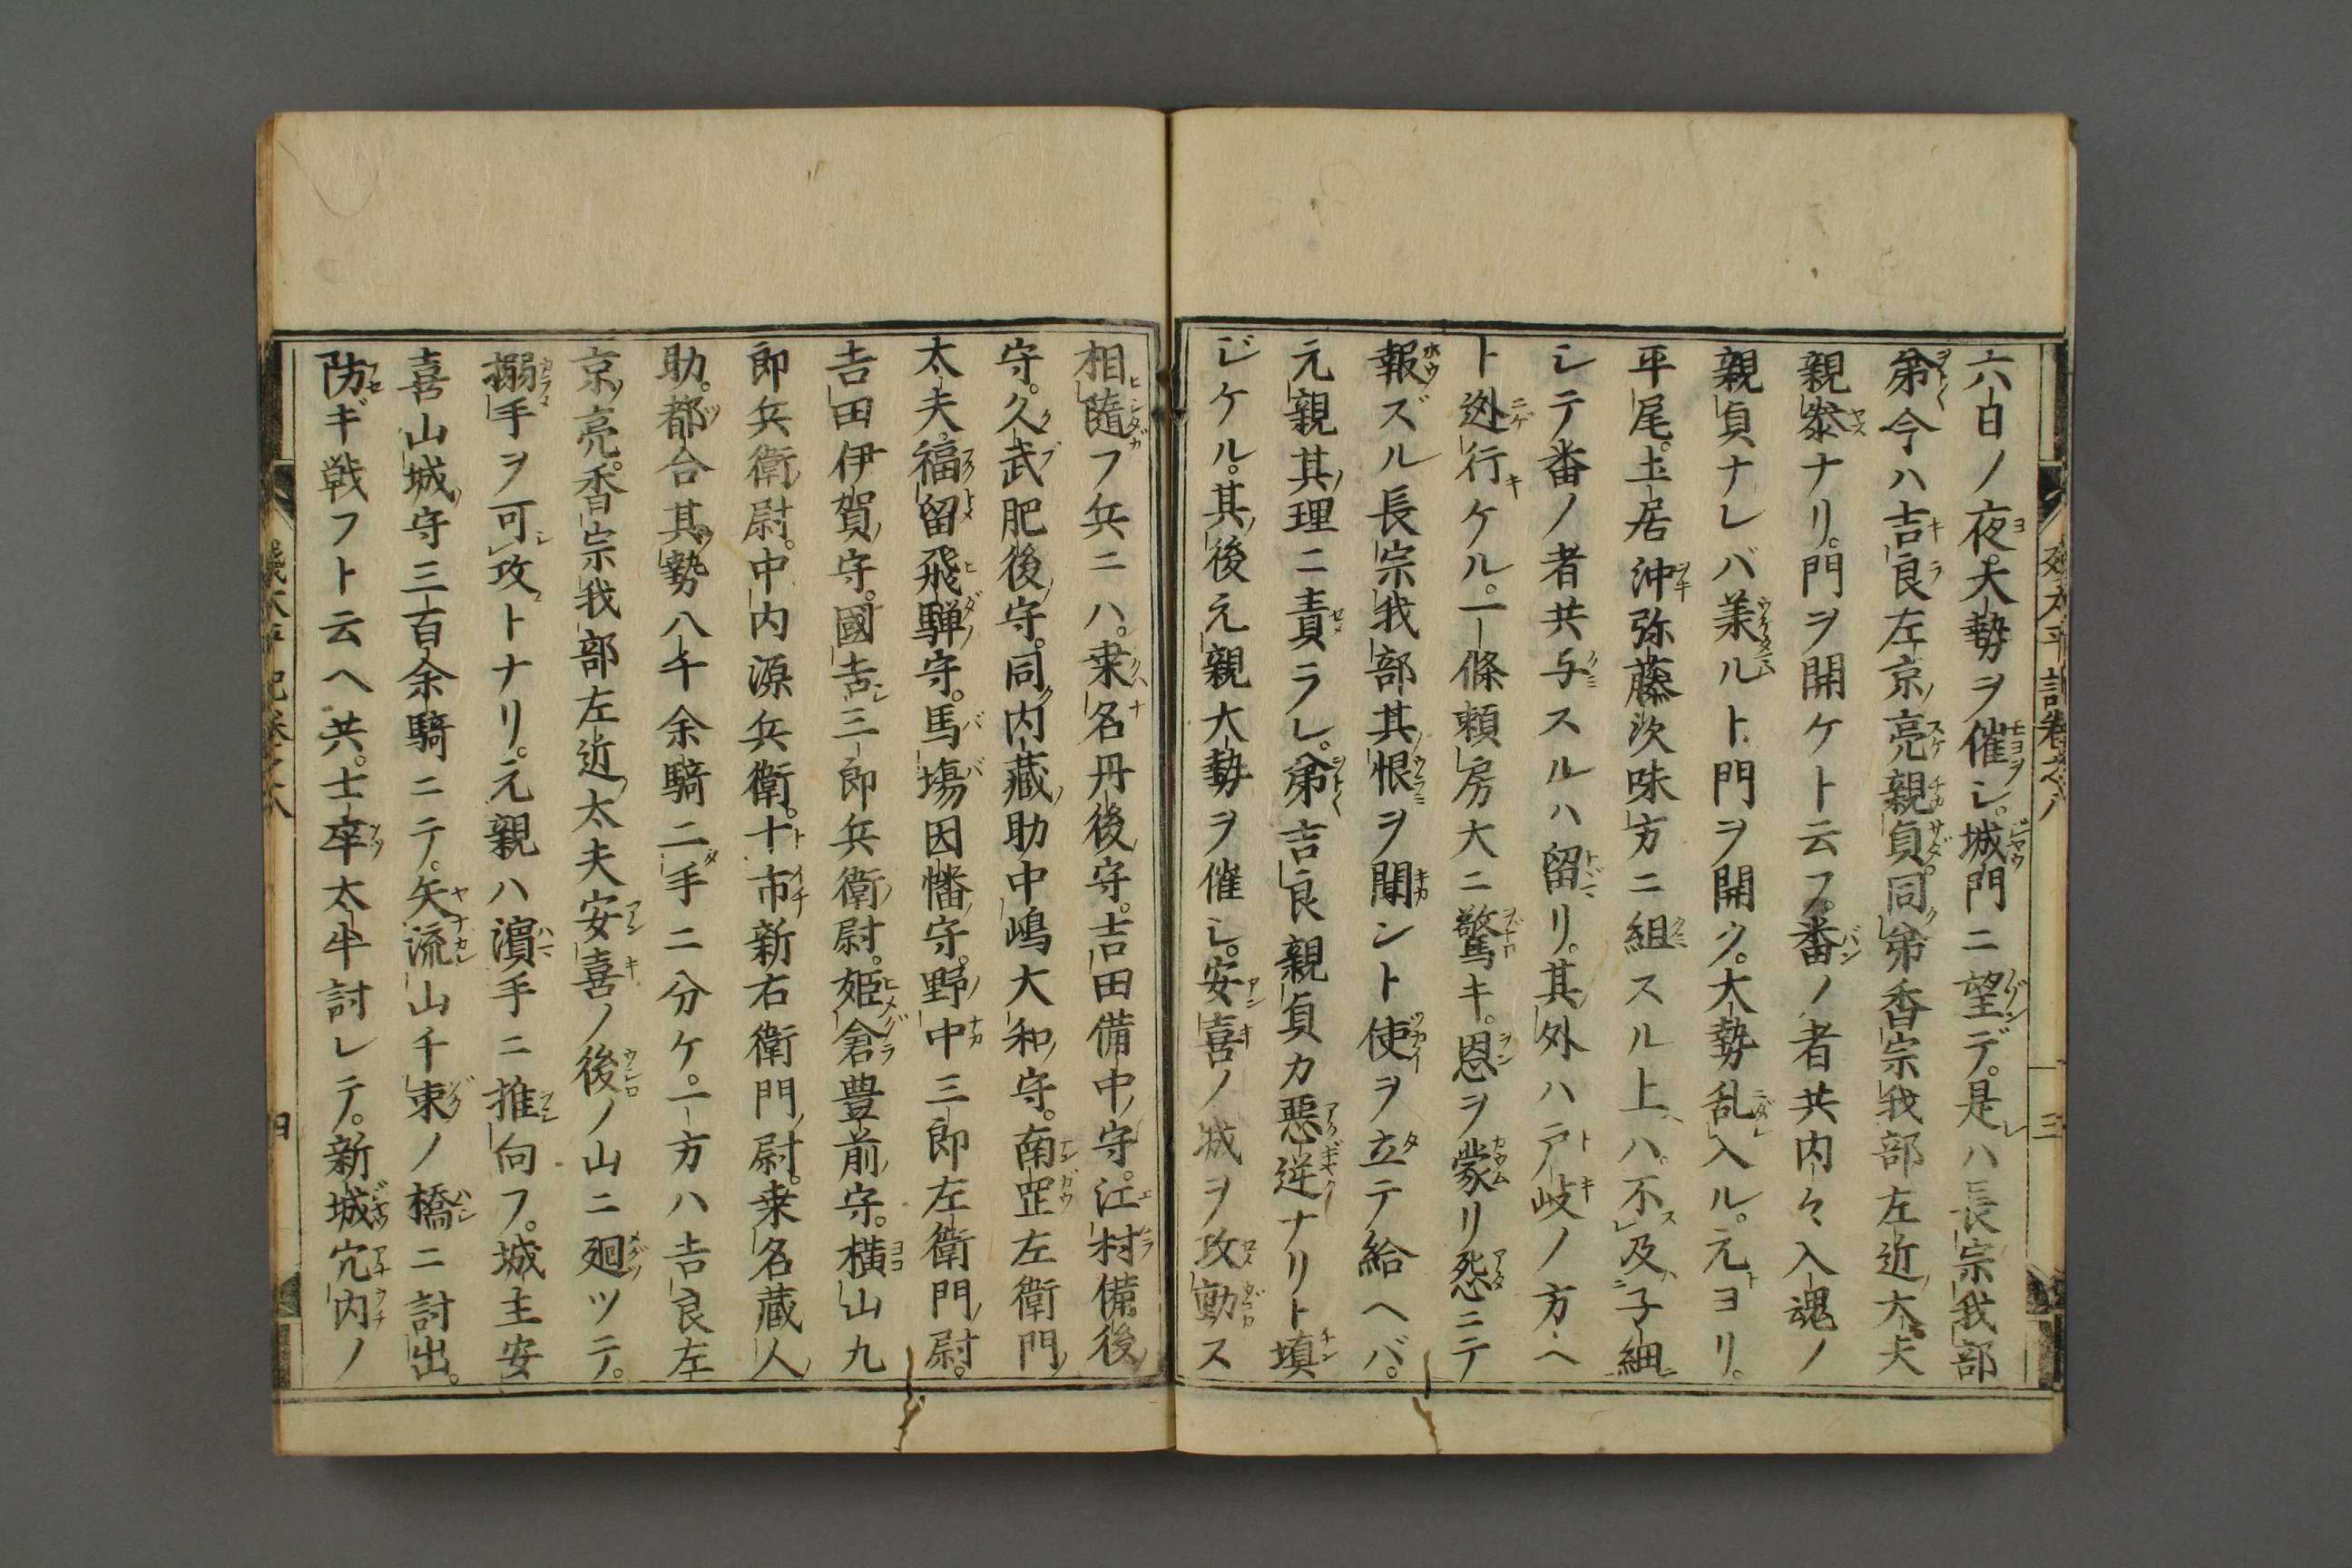 六日ノ夜。大勢ヲ催シ。城門ニ望デ。是ハ長宗我部
弟今ハ吉良左京ノ亮親貞。同弟香宗我部左近ノ大夫
親泰ナリ。門ヲ開ケト云フ。番ノ者共内々入魂ノ
親貞ナレバ美ルト門ヲ開ク。大勢乱入ル。元ヨリ。
平尾。土居沖弥藤次味方ニ組スル上ハ。不及子細
シテ番ノ者共与スルハ留リ。其外ハ戸岐ノ方ヘ
ト迯行ケル。一條頼房大ニ驚キ。恩ヲ蒙リ怨ニテ
報ズル長宗我部其恨ヲ聞ント使ヲ立テ給ヘバ。
元親其ノ理ニ責ラレ。弟吉良親貞カ悪逆ナリト塡
ジケル。其ノ後元親大勢ヲ催シ。安喜ノ城ヲ攻動ス
相隨フ兵ニハ。桒名丹後守。吉田備中ノ守。江村備後ノ
守。久武肥後ノ守。同内藏ノ助中嶋大和ノ守。南罡左衛門ノ
太夫。福留飛騨ノ守。馬塲因幡ノ守。野中三郎左衛門ノ尉。
吉田伊賀ノ守。國吉三郎兵衛ノ尉。姫倉豊前ノ守。横山九
郎兵衛ノ尉。中内源兵衛。十市新右衛門ノ尉。桒名蔵人
助。都合其勢八千余騎二手ニ分ケ。一方ハ吉良左
京ノ亮。香宗我部左近ノ太夫安喜ノ後ノ山ニ廻ツテ。
搦手ヲ可攻トナリ。元親ハ濵手ニ推向フ。城主安
喜山城ノ守三百余騎ニテ。矢流山千束ノ橋ニ討出。
防ギ戦フト云ヘ共。士卒太半討レテ。新城穴内ノ